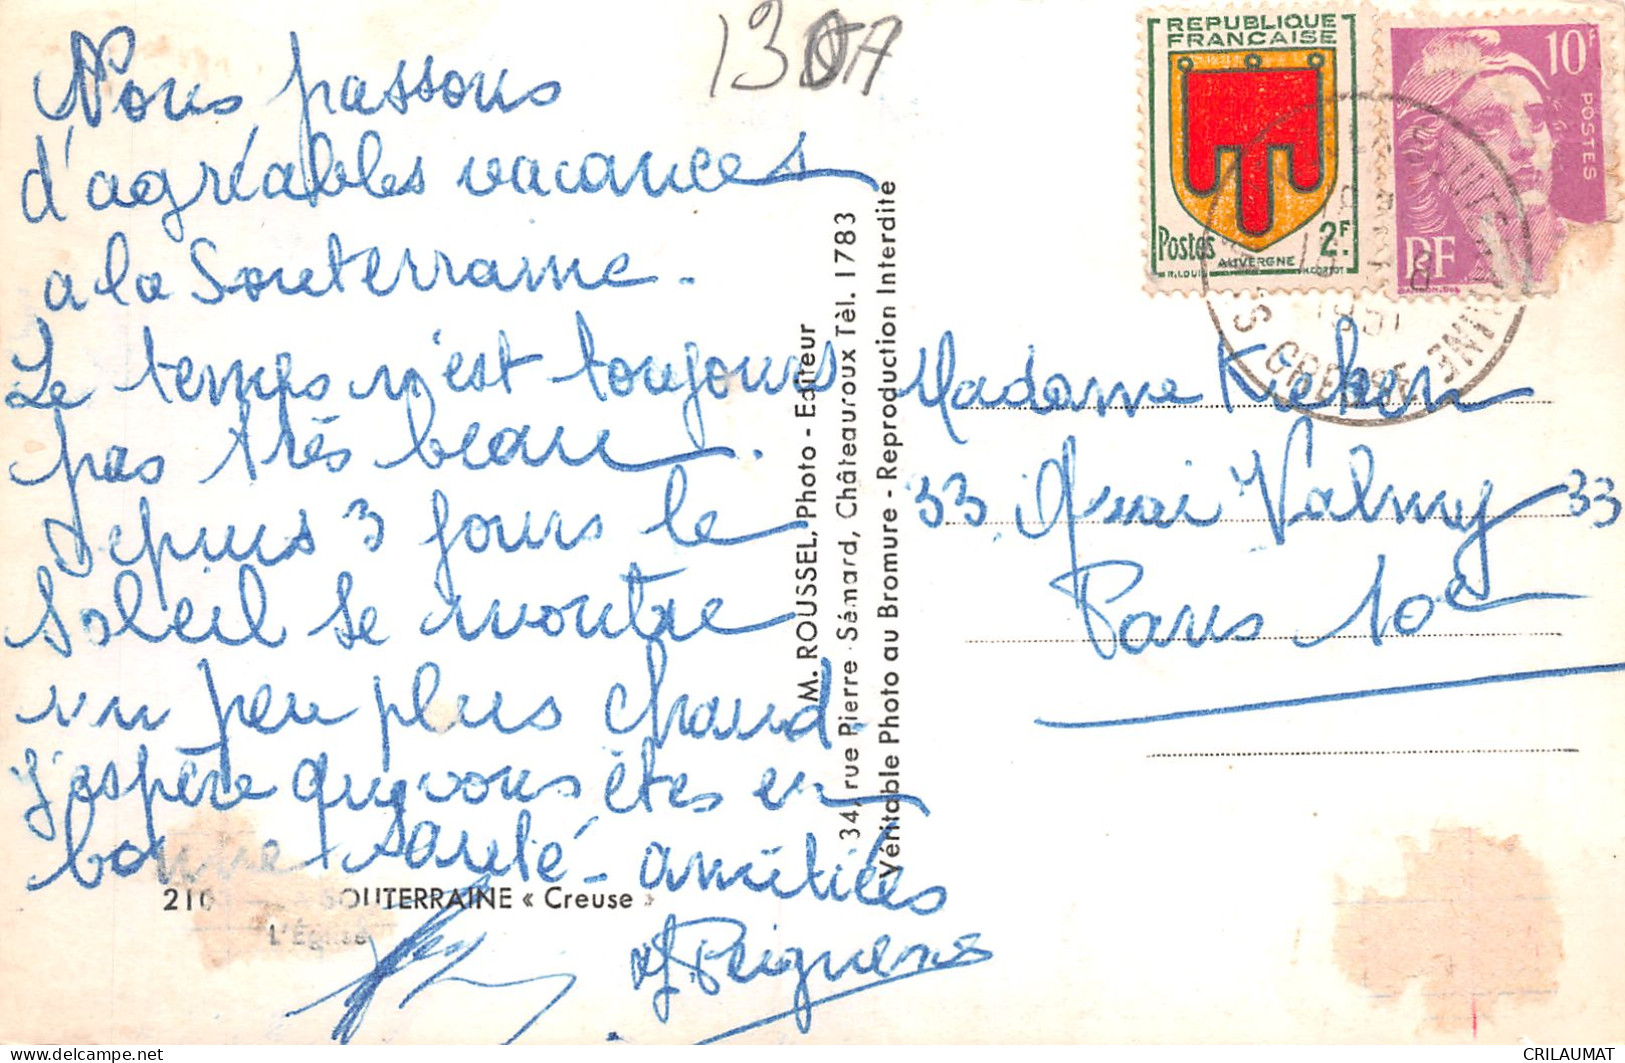 130A
Nous passons
d'agréables vacances
a la Souterraine.
Le temps n'est toujours
pas très beau.
depuis 3 jours le
Soleil se montre
un peu plus chaud-
j'espère que vous êtes en
bonne santé - amitiés
210 SOUTERRAINE « Creuse »
L'Église
M. ROUSSEL, Photo - Editeur
34, rue Pierre Sémard, Châteauroux Tèl. 1783
Véritable Photo au Bromure - Reproduction Interdite
REPUBLIQUE
FRANCAISE
Postes 2F.
AUVERGNE
R. LOUIS
10F
POSTES
RF
1951
CREUSE
Madame
33 Quai Valmy 33
Paris 10e
CRILAUMAT